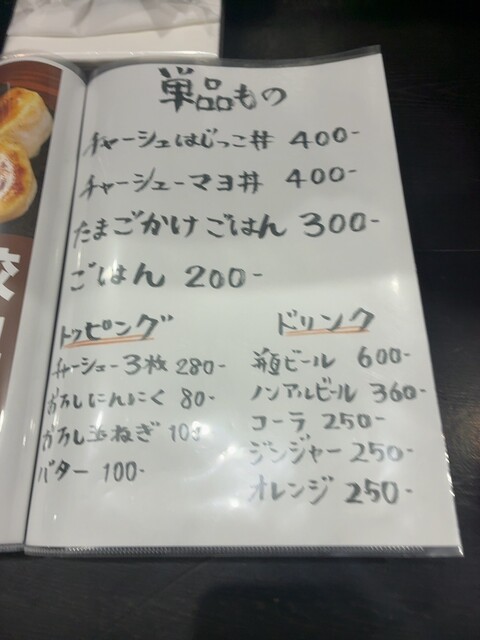 単品もの
チャーシュはじっこ丼 400-
チャーシューマヨ丼 400-
たまごかけごはん 300-
ごはん 200-
トッピング
チャーシュー3枚 280-
おろしにんにく 80-
おろし玉ねぎ
バター 100-
ドリンク
瓶ビール 600-
ノンアルビール 360-
コーラ 250-
ジンジャー 250-
オレンジ 250-